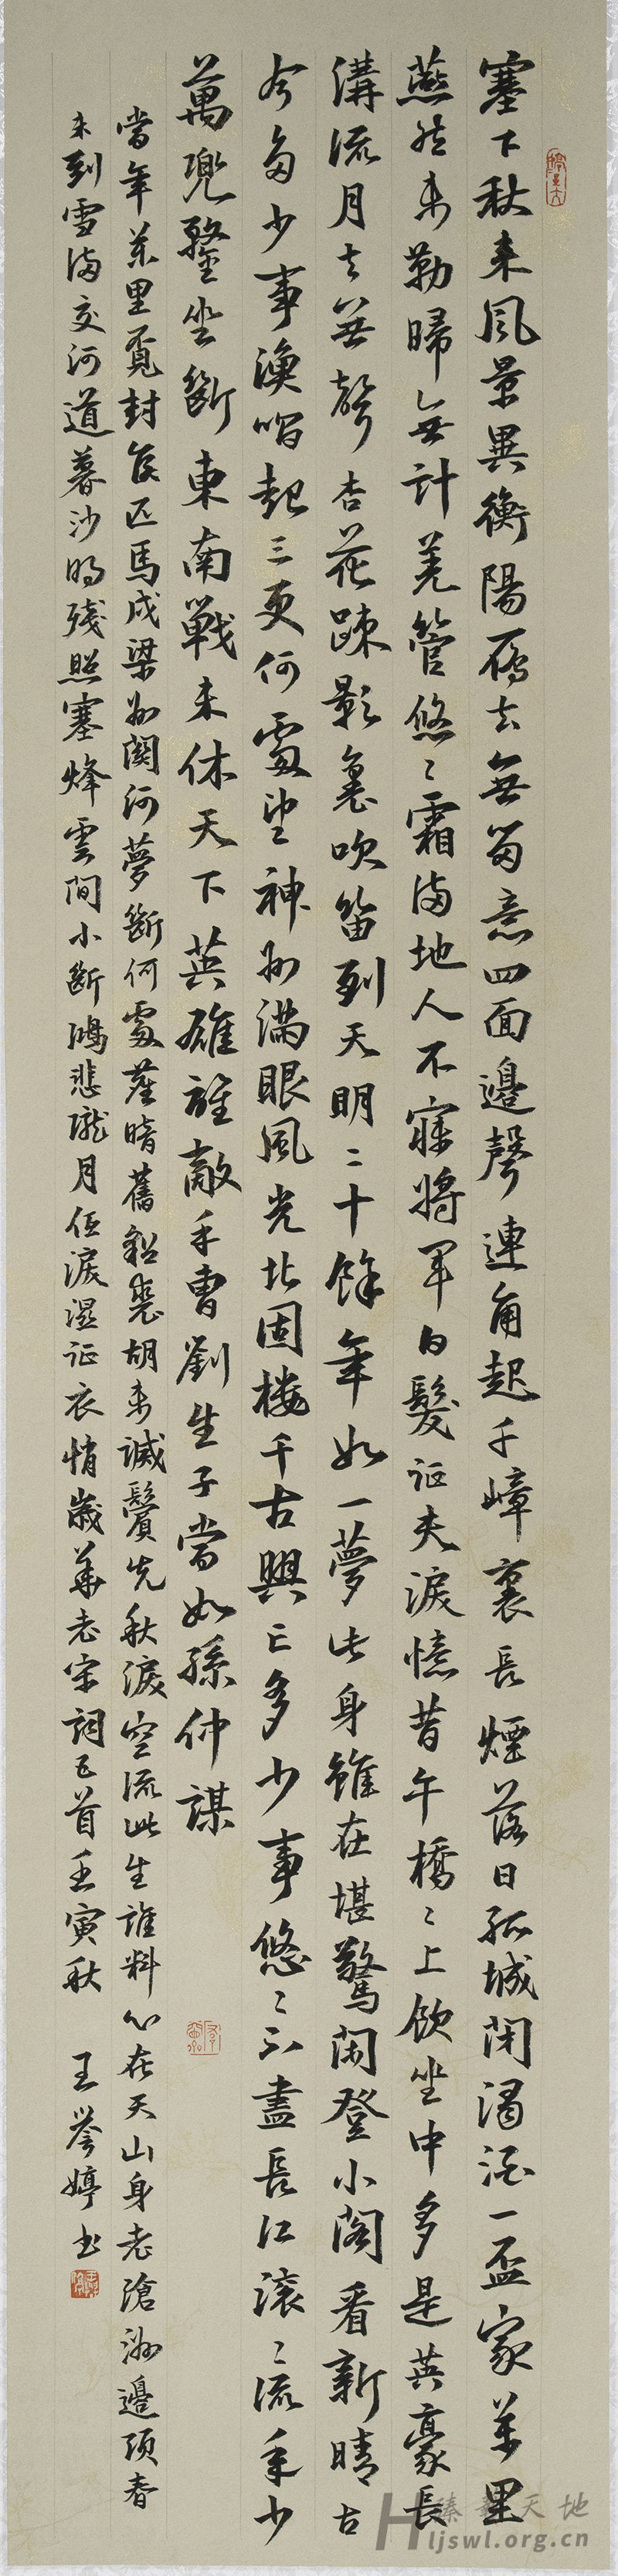 塞下秋来風景異衡陽雁去無留意四面邊聲連角起千嶂裏長煙落日孤城閉濁酒一盃家萬里
燕然未勒歸無計羌管悠々霜滿地人不寐將軍白髮征夫淚憶昔午橋々上飲坐中多是英豪長
溝流月去無聲杏花疎影裏吹笛到天明二十餘年如一夢此身雖在堪驚閑登小閣看新晴古
今多少事漁唱起三更何處望神州滿眼風光北固樓千古興亡多少事悠々不盡長江滾々流年少
萬兜鍪坐斷東南戰未休天下英雄誰敵手曹劉生子當如孫仲謀
當年萬里覓封侯匹馬戍梁州關河夢斷何處塵暗舊貂裘胡未滅鬢先秋淚空流此生誰料心在天山身老滄洲邊頭春
未到雪滿交河道暮沙明殘照塞烽雲間小斷鴻悲隴月低淚濕征衣悄歲華老宋詞五首壬寅秋 王譽婷书
ljswl.org.cn